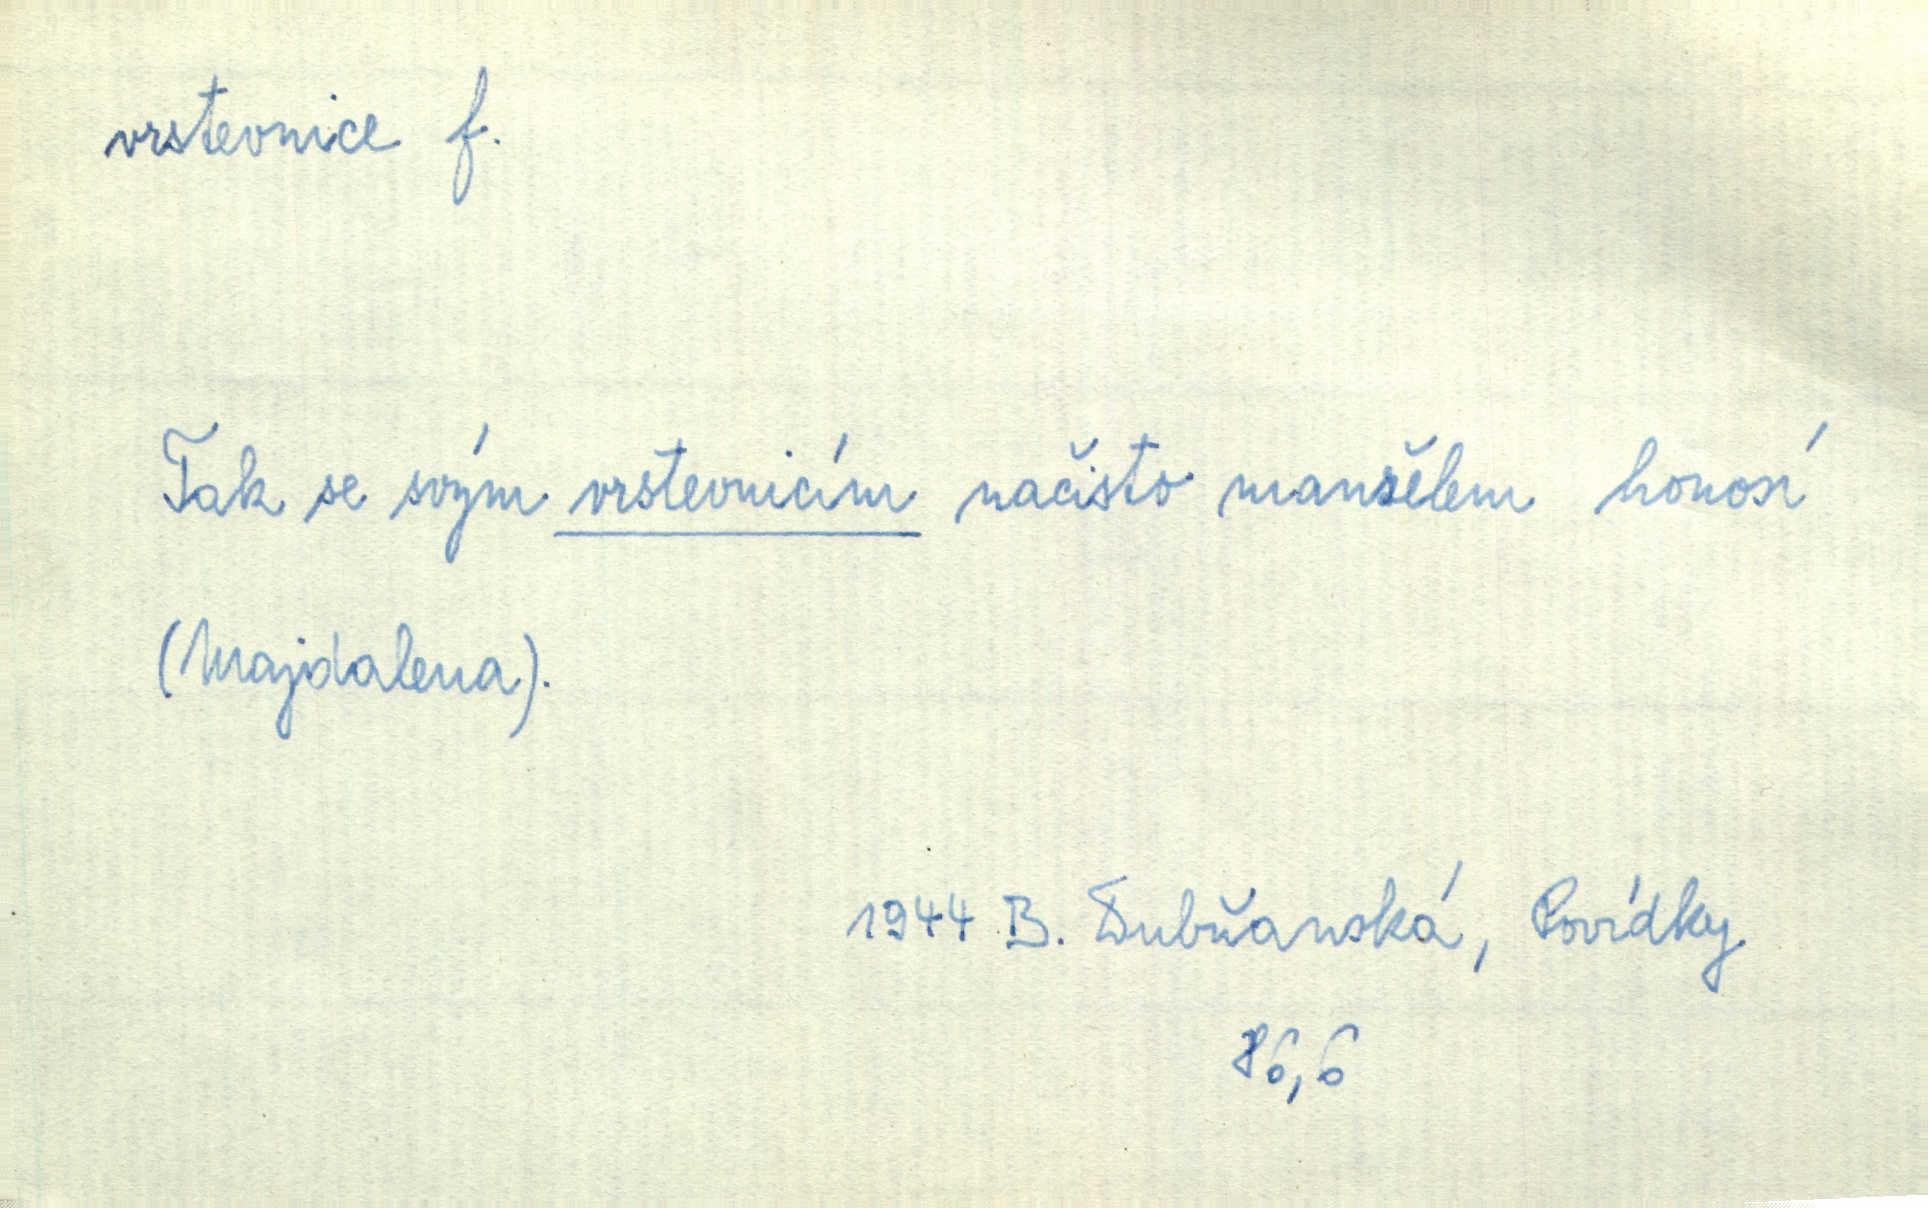 vrstevnice f.
Tak se svým vrstevnicím načisto manželem honosí
(Majdalena).
1944 B. Dubňanská, Povídky
86,6